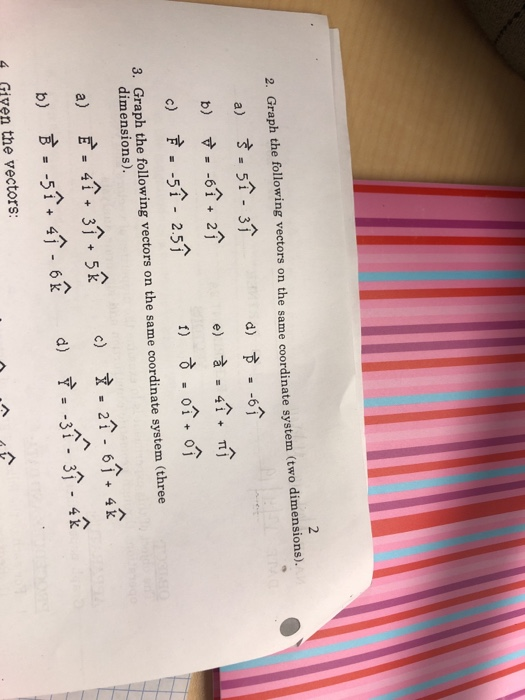 2
2. Graph the following vectors on the same coordinate system (two dimensions).
a) s⃗ = 5î - 3ĵ d) p⃗ = -6ĵ
b) v⃗ = -6î + 2ĵ e) a⃗ = 4î + πĵ
c) F⃗ = -5î - 2.5ĵ f) o⃗ = 0î + 0ĵ
3. Graph the following vectors on the same coordinate system (three
dimensions).
a) E⃗ = 4î + 3ĵ + 5k̂ c) X⃗ = 2î - 6ĵ + 4k̂
b) B⃗ = -5î + 4ĵ - 6k̂ d) Y⃗ = -3î - 3ĵ - 4k̂
4 Given the vectors: